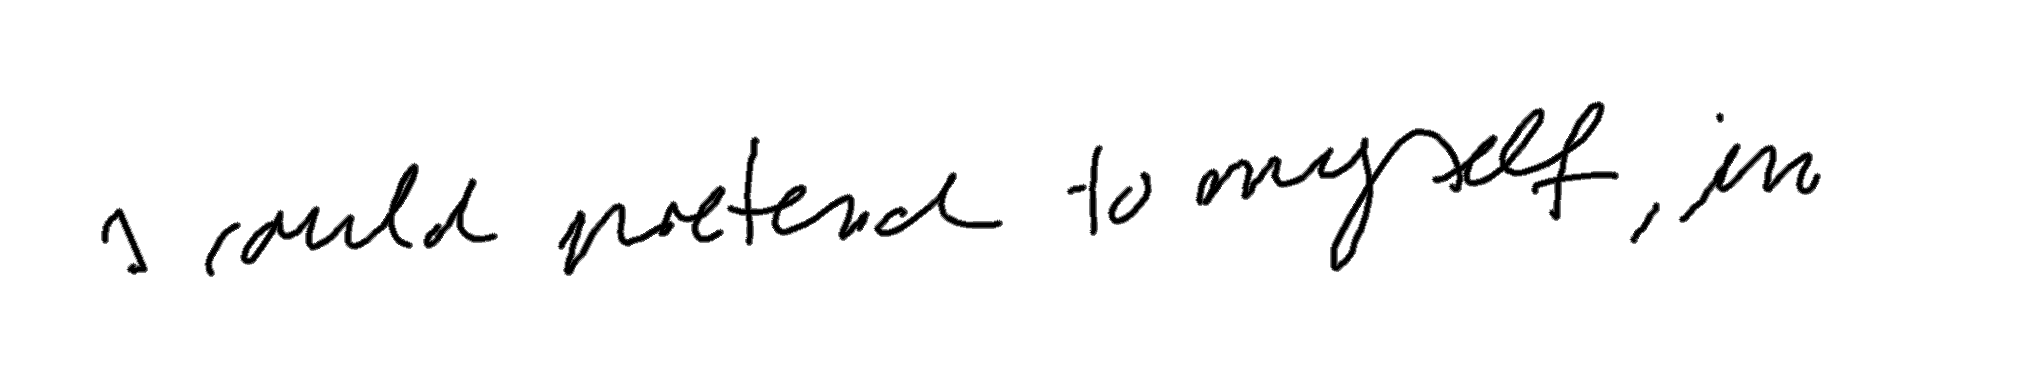 I could pretend to myself, in